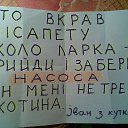 ТО ВКРАВ
ІСАПЕТУ
КОЛО ПАРКА -
РИЙДИ І ЗАБЕРИ
НАСОСА
ІН МЕНІ НЕ ТРЕ
КОТИНА.
Іван з кутк